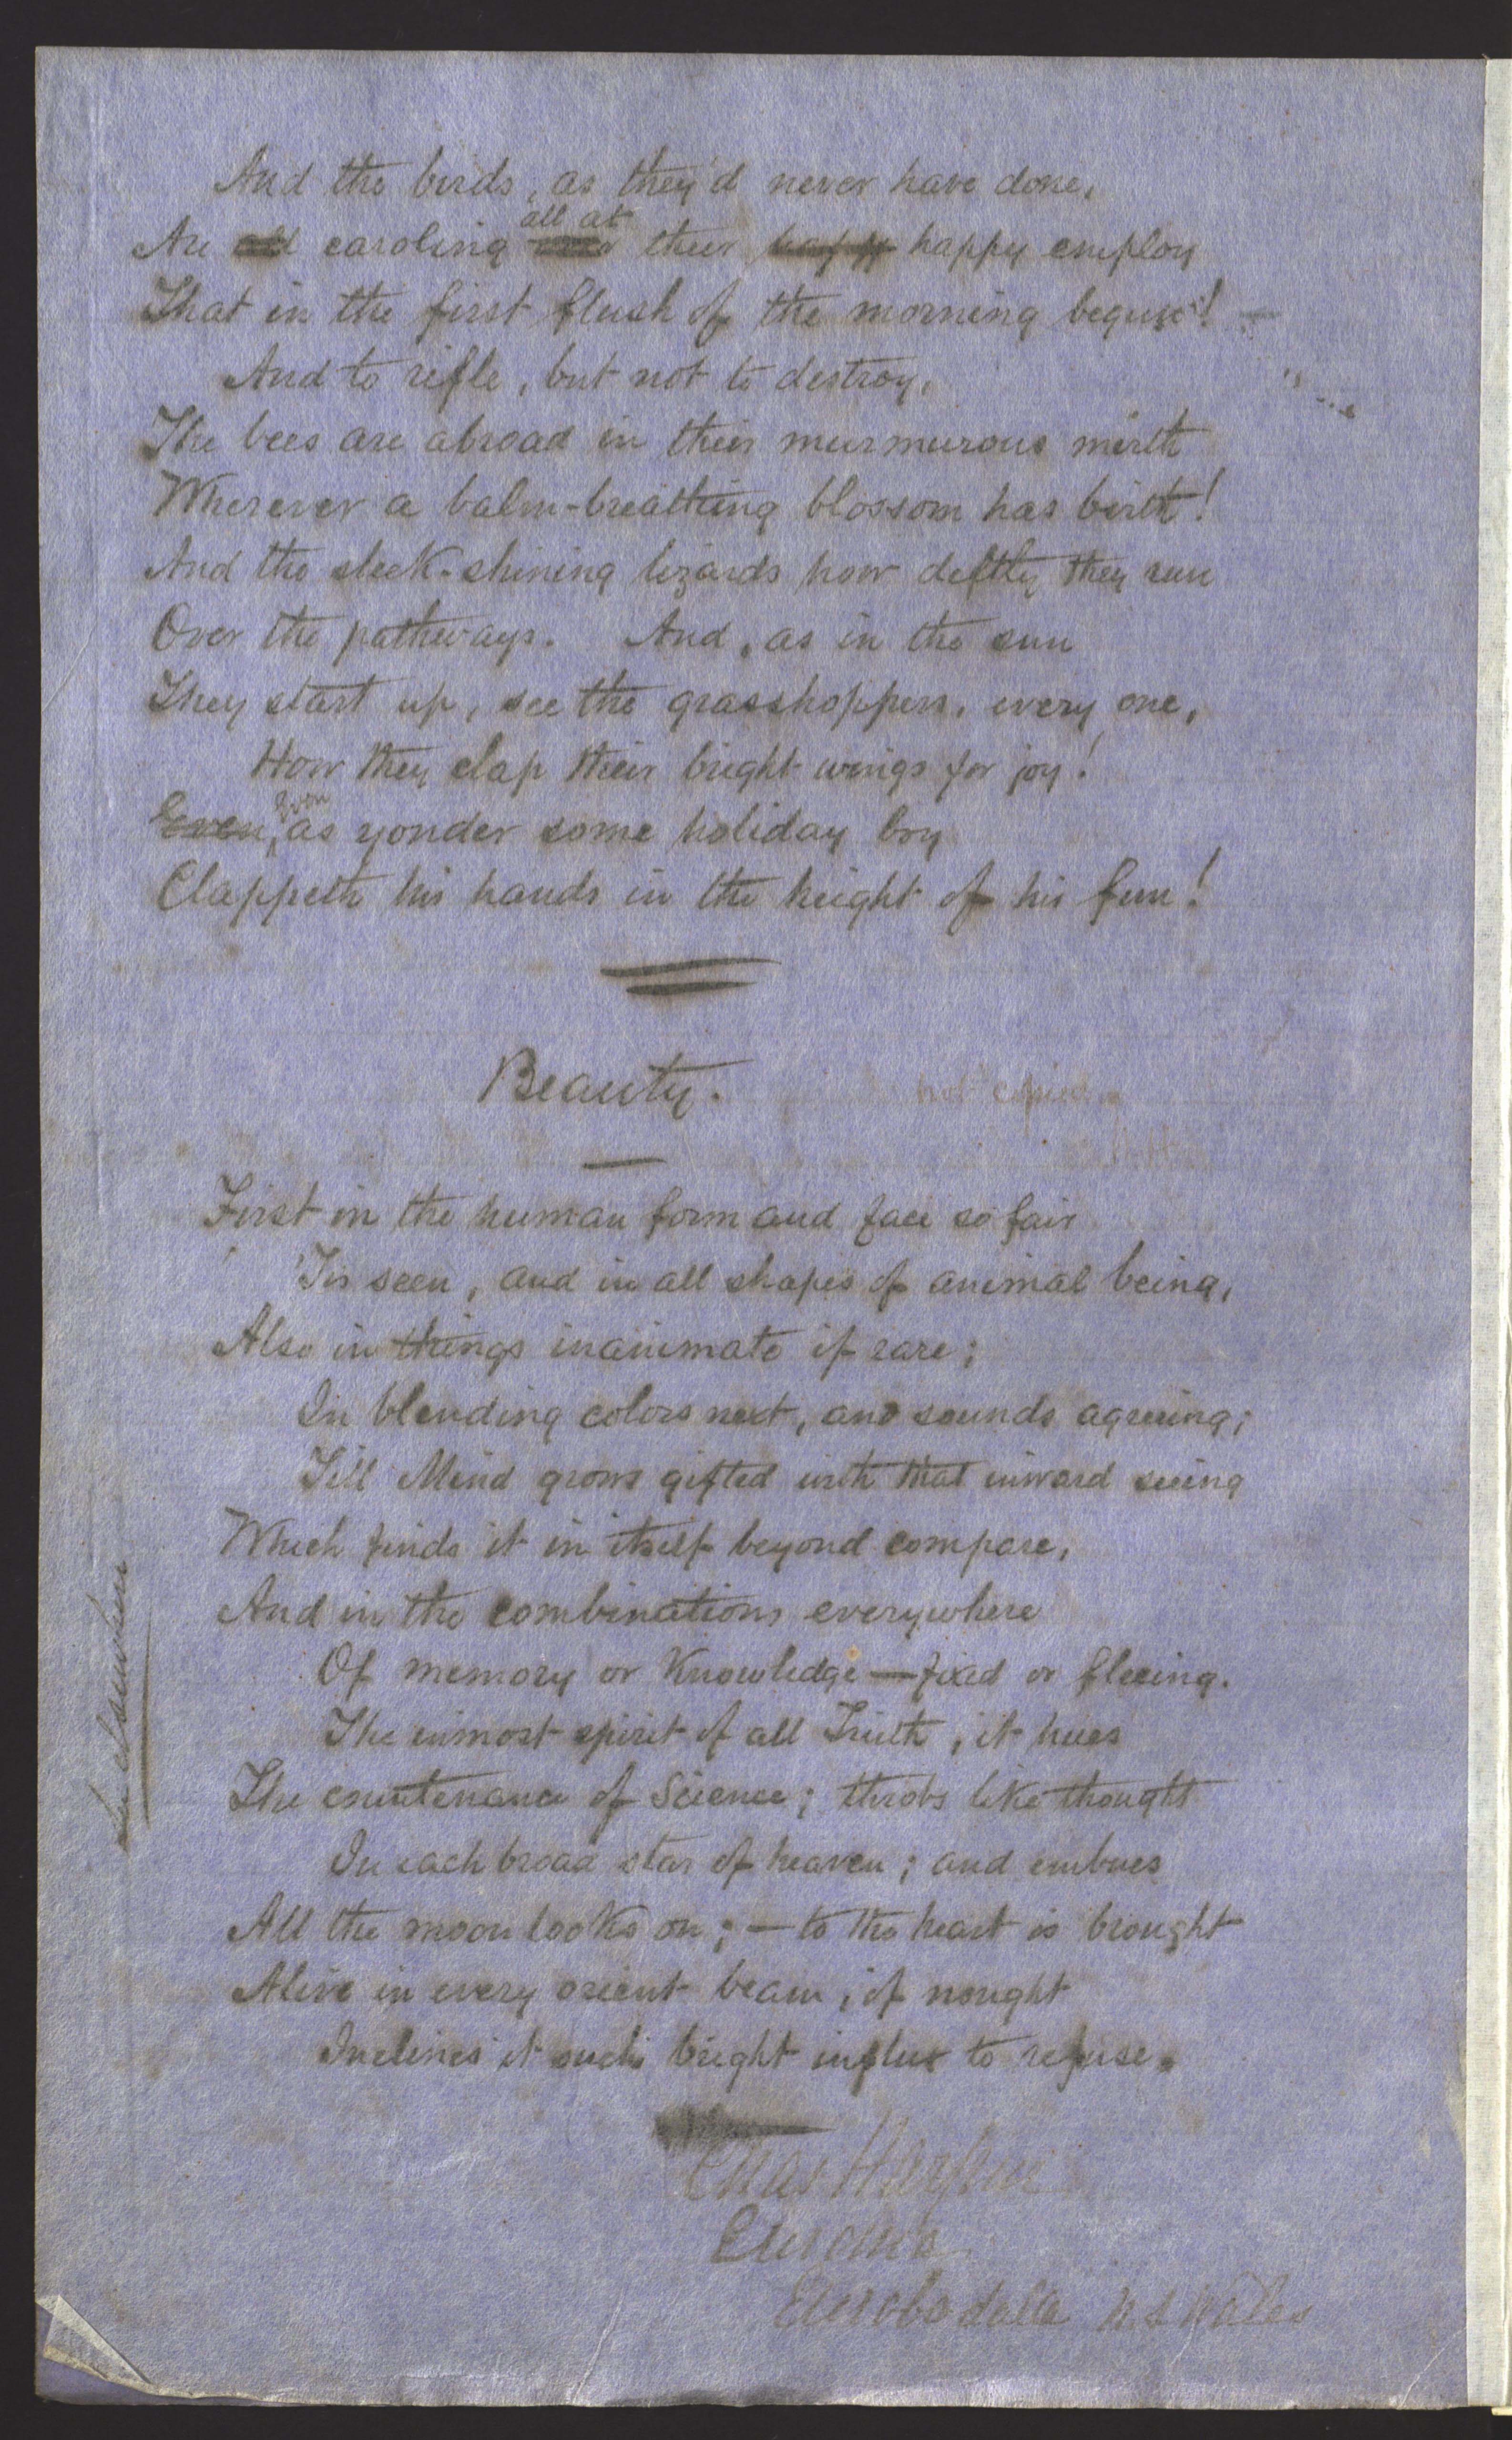 And the birds, as they'd never have done,
Are all caroling all at over their happy happy employ
That in the first flush of the morning begun! —
And to rifle, but not to destroy,
The bees are abroad in their murmurous mirth
Wherever a balm-breathing blossom has birth!
And the sleek-shining lizards how deftly they run
Over the pathways. And, as in the sun
They start up, see the grasshoppers, every one,
How they clap their bright wings for joy!
Even, Even as yonder some holiday boy
Clappeth his hands in the height of his fun!
Beauty.
not copied
First in the human form and face so fair
'Tis seen, and in all shapes of animal being,
Also in things inanimate if rare;
In blending colors next, and sounds agreeing;
Till Mind grows gifted with that inward seeing
Which finds it in itself beyond compare,
And in the combinations everywhere
Of memory or Knowledge — fixed or fleeing.
The inmost spirit of all Truth, it hues
The countenance of Science; throbs like thought
In each broad star of heaven; and embues
All the moon looks on; — to the heart is brought
Alive in every orient beam, if nought
Inclines it such bright influx to refuse.
Chas Harpur
Euroma
Eurobodalla N S Wales